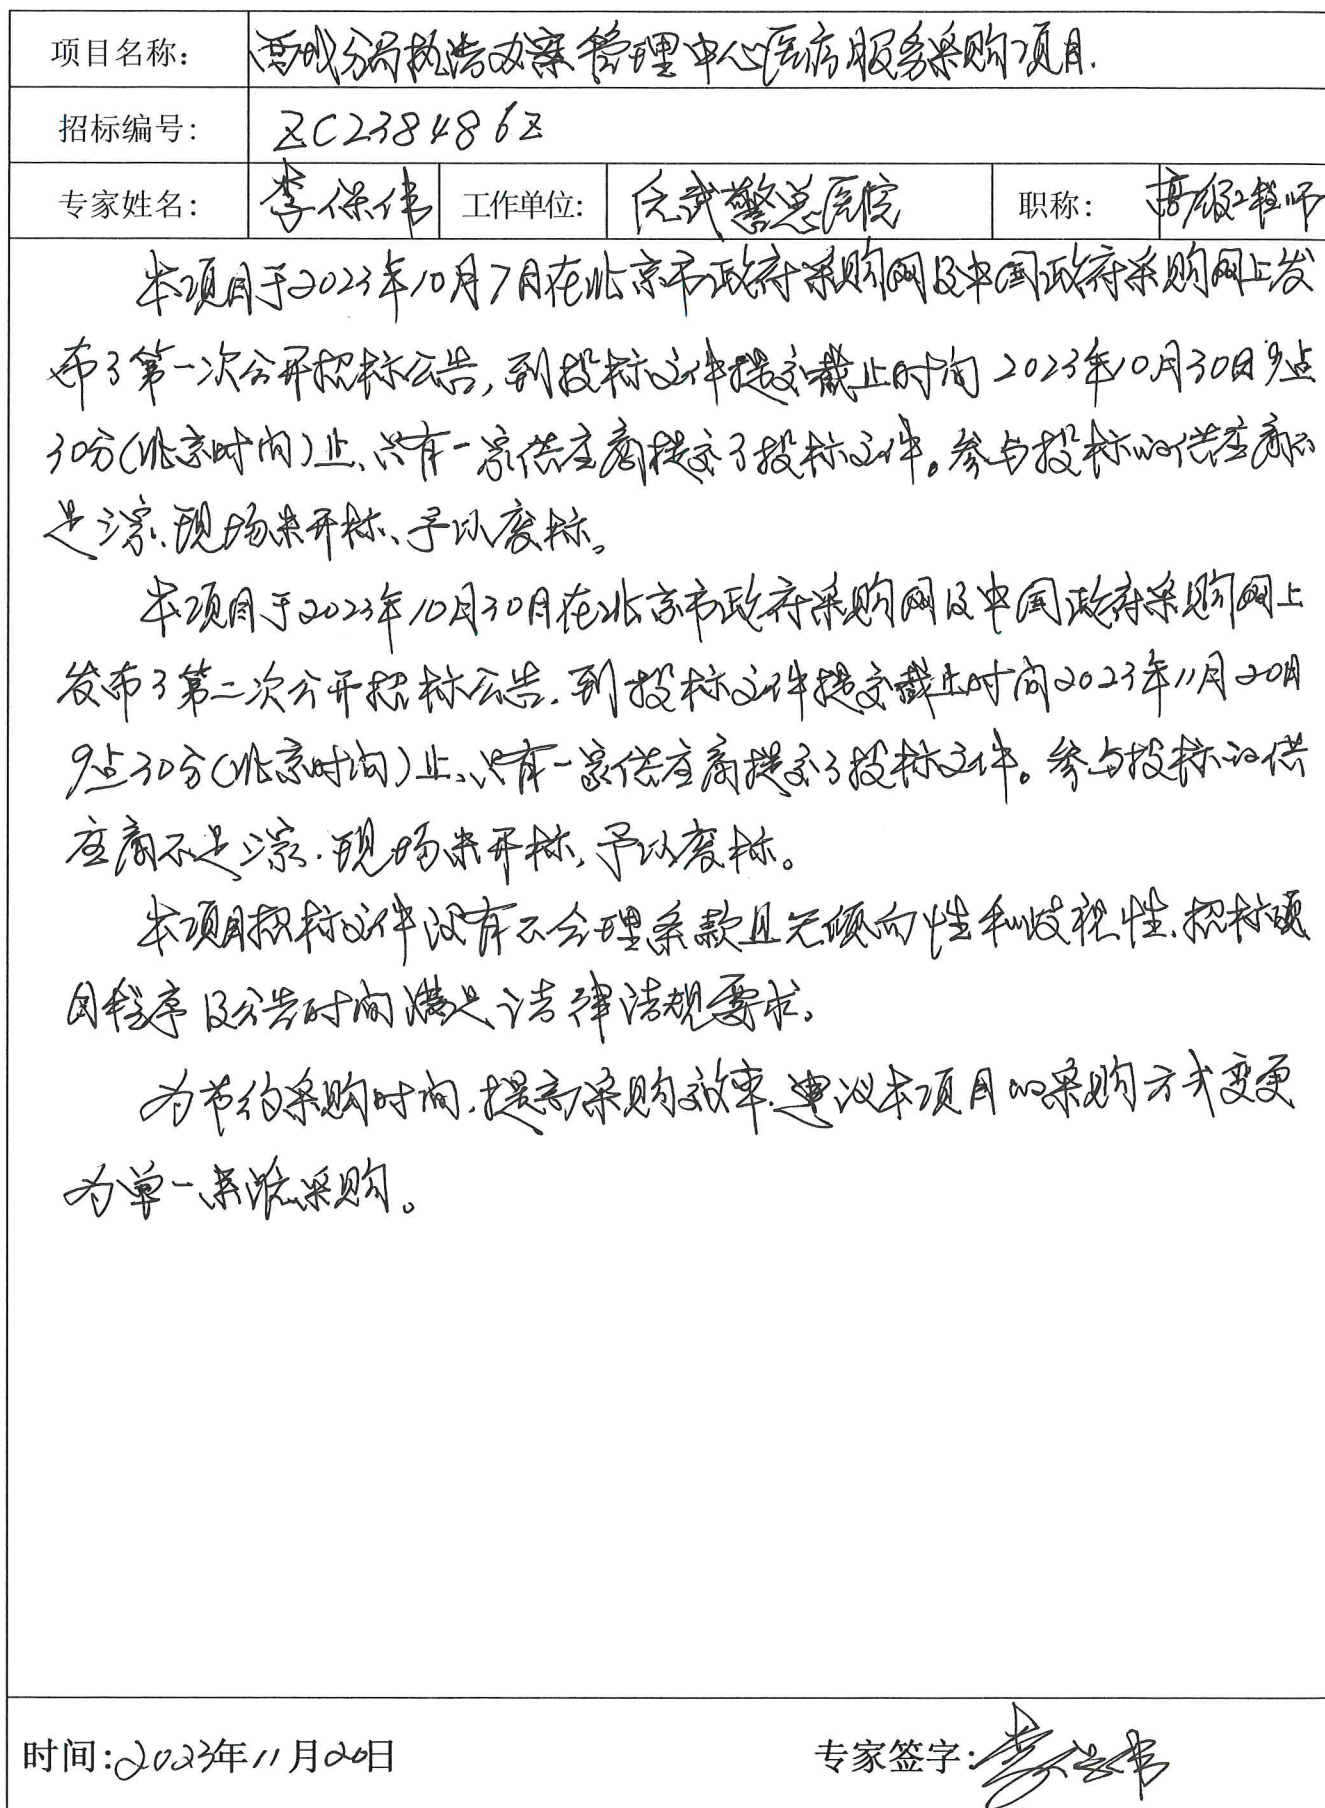 项目名称: 西城分局执法办案管理中心医疗服务采购项目.
招标编号: ZC238486Z
专家姓名: 李保伟 工作单位: 武警总医院 职称: 高级工程师
本项目于2023年10月7日在北京市政府采购网及中国政府采购网上发
布了第一次公开招标公告,到投标文件提交截止时间 2023年10月30日9点
30分(北京时间)止、只有一家供应商提交了投标文件。参与投标的供应商不
足三家、现场未开标、予以废标。
本项目于2023年10月30日在北京市政府采购网及中国政府采购网上
发布了第二次公开招标公告.到投标文件提交截止时间2023年11月20日
9点30分(北京时间)止、只有一家供应商提交了投标文件。参与投标的供
应商不足三家.现场未开标,予以废标。
本项目招标文件没有不合理条款且无倾向性和歧视性.招标项
目程序及公告时间满足法律法规要求。
为节约采购时间.提高采购效率.建议本项目的采购方式变更
为单一来源采购。
时间:2023年11月20日 专家签字:李保伟